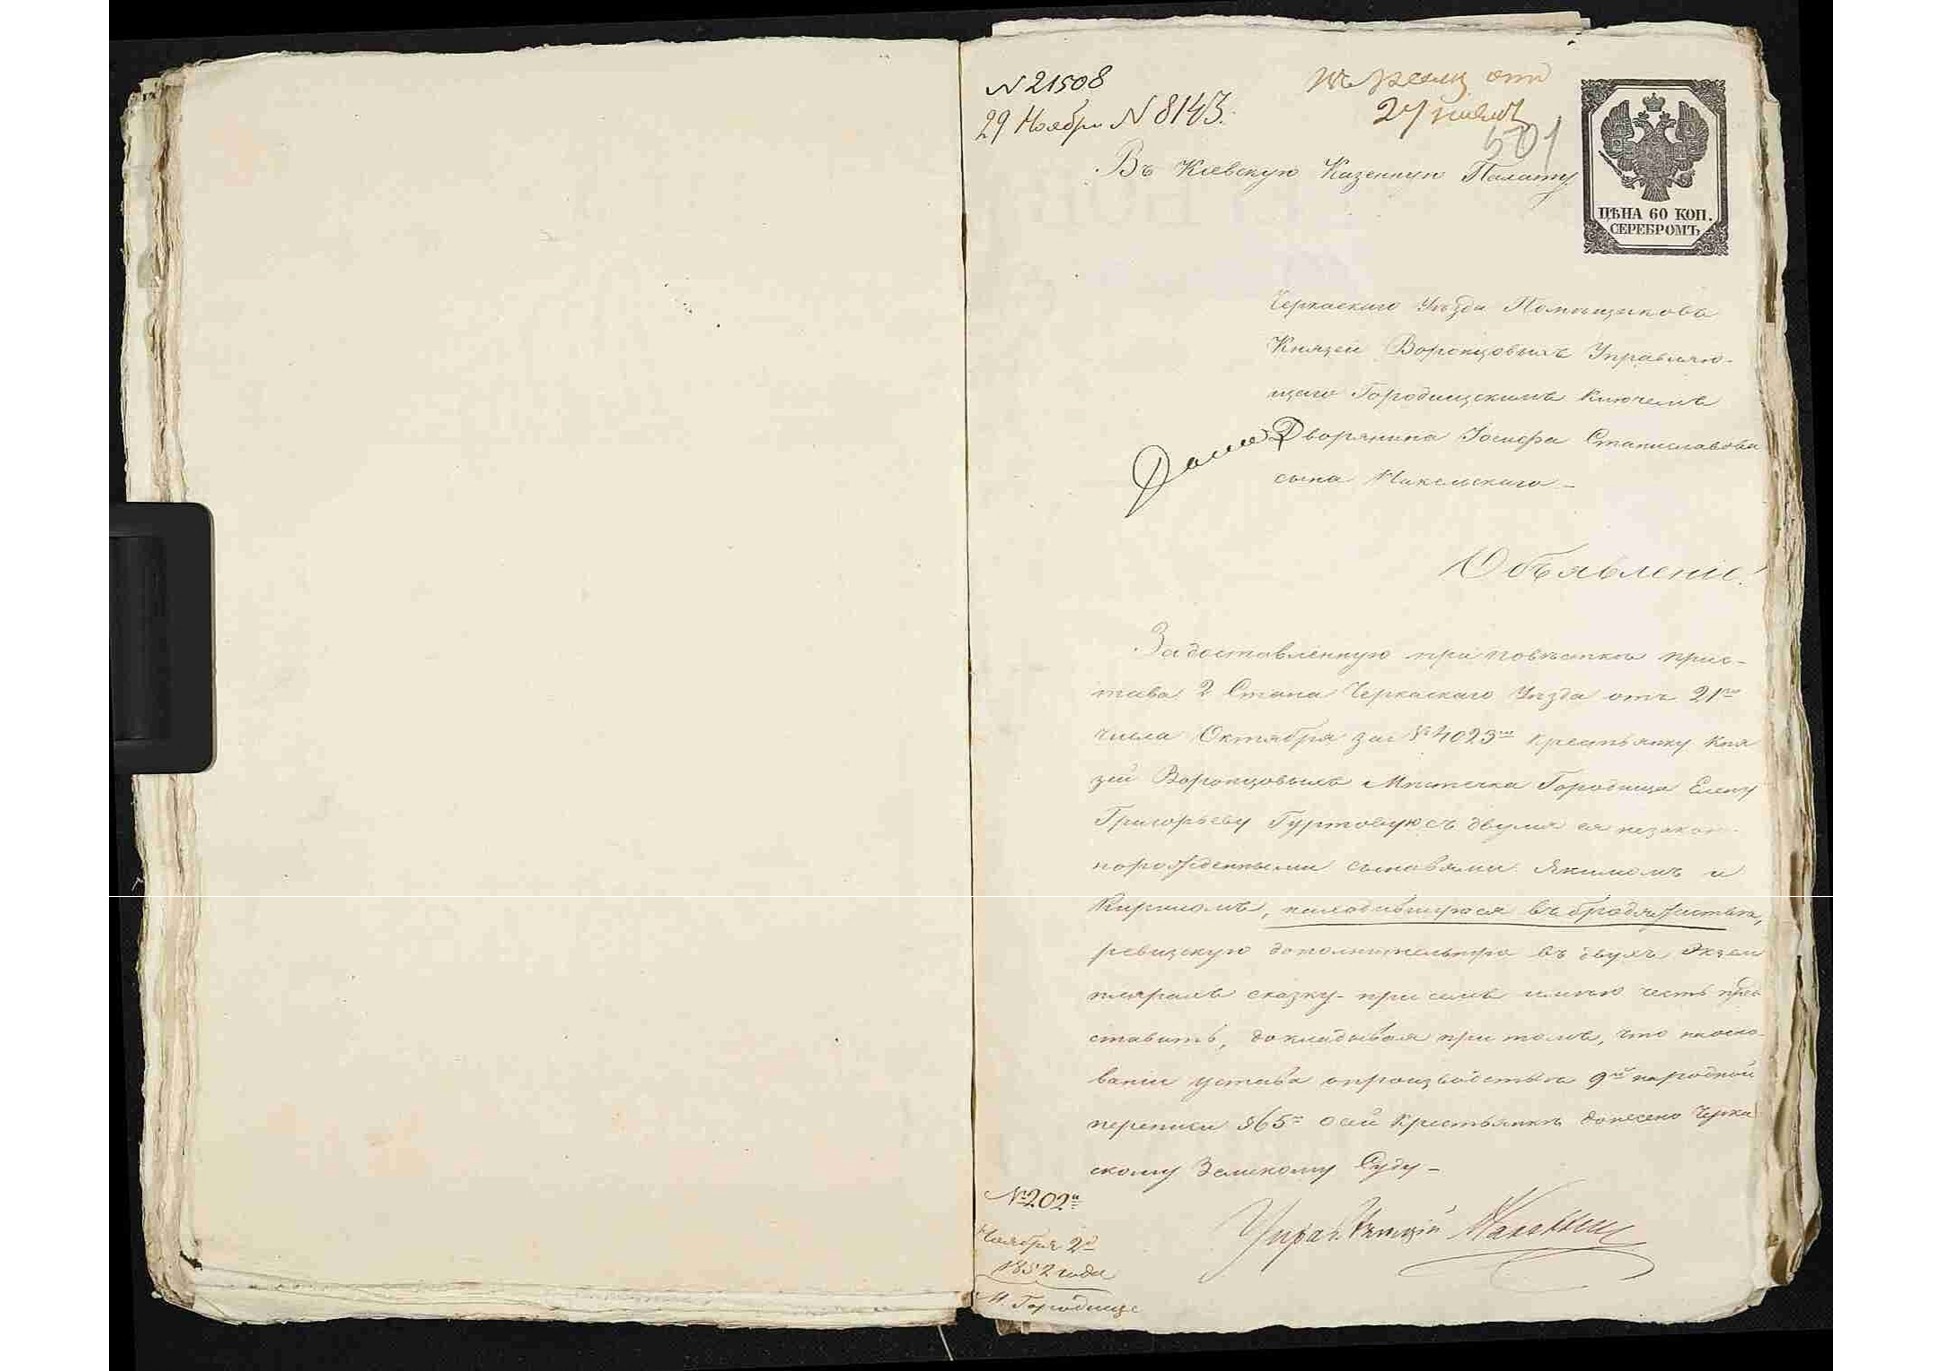 N 21508
29 Ноября N 8143.
501
Въ Кіевскую Казенную Палату
ЦѢНА 60 КОП.
СЕРЕБРОМЪ
Черкаскаго Уѣзда Помѣщиковъ
Князей Воронцовыхъ Управляю-
щаго Городищскимъ Ключемъ
Дворянина Іосифа Станиславова
сына
Объявленіе.
Задоставленную при повѣсткѣ прис-
тава 2 Стана Черкаскаго Уѣзда отъ 21го
числа Октября за № 4023м крестьянку Кня
зей Воронцовыхъ Мѣстечка Городища Елену
Григорьеву Гуртовую съ двумя ея незакон-
норожденными сыновями Якимомъ и
Кириломъ, находившуюся въ бродяжествѣ,
ревизскую дополнительную въ двухъ Экзем
плярахъ сказку при семъ имѣю честь пред
ставить, докладывая при томъ, что наосно-
ваніи устава опроизводствѣ 9й народной
переписи о сей Крестьянкѣ донесено Черка
скому Земскому Суду
№ 202й
Ноября 2д
1852 года
М. Городище